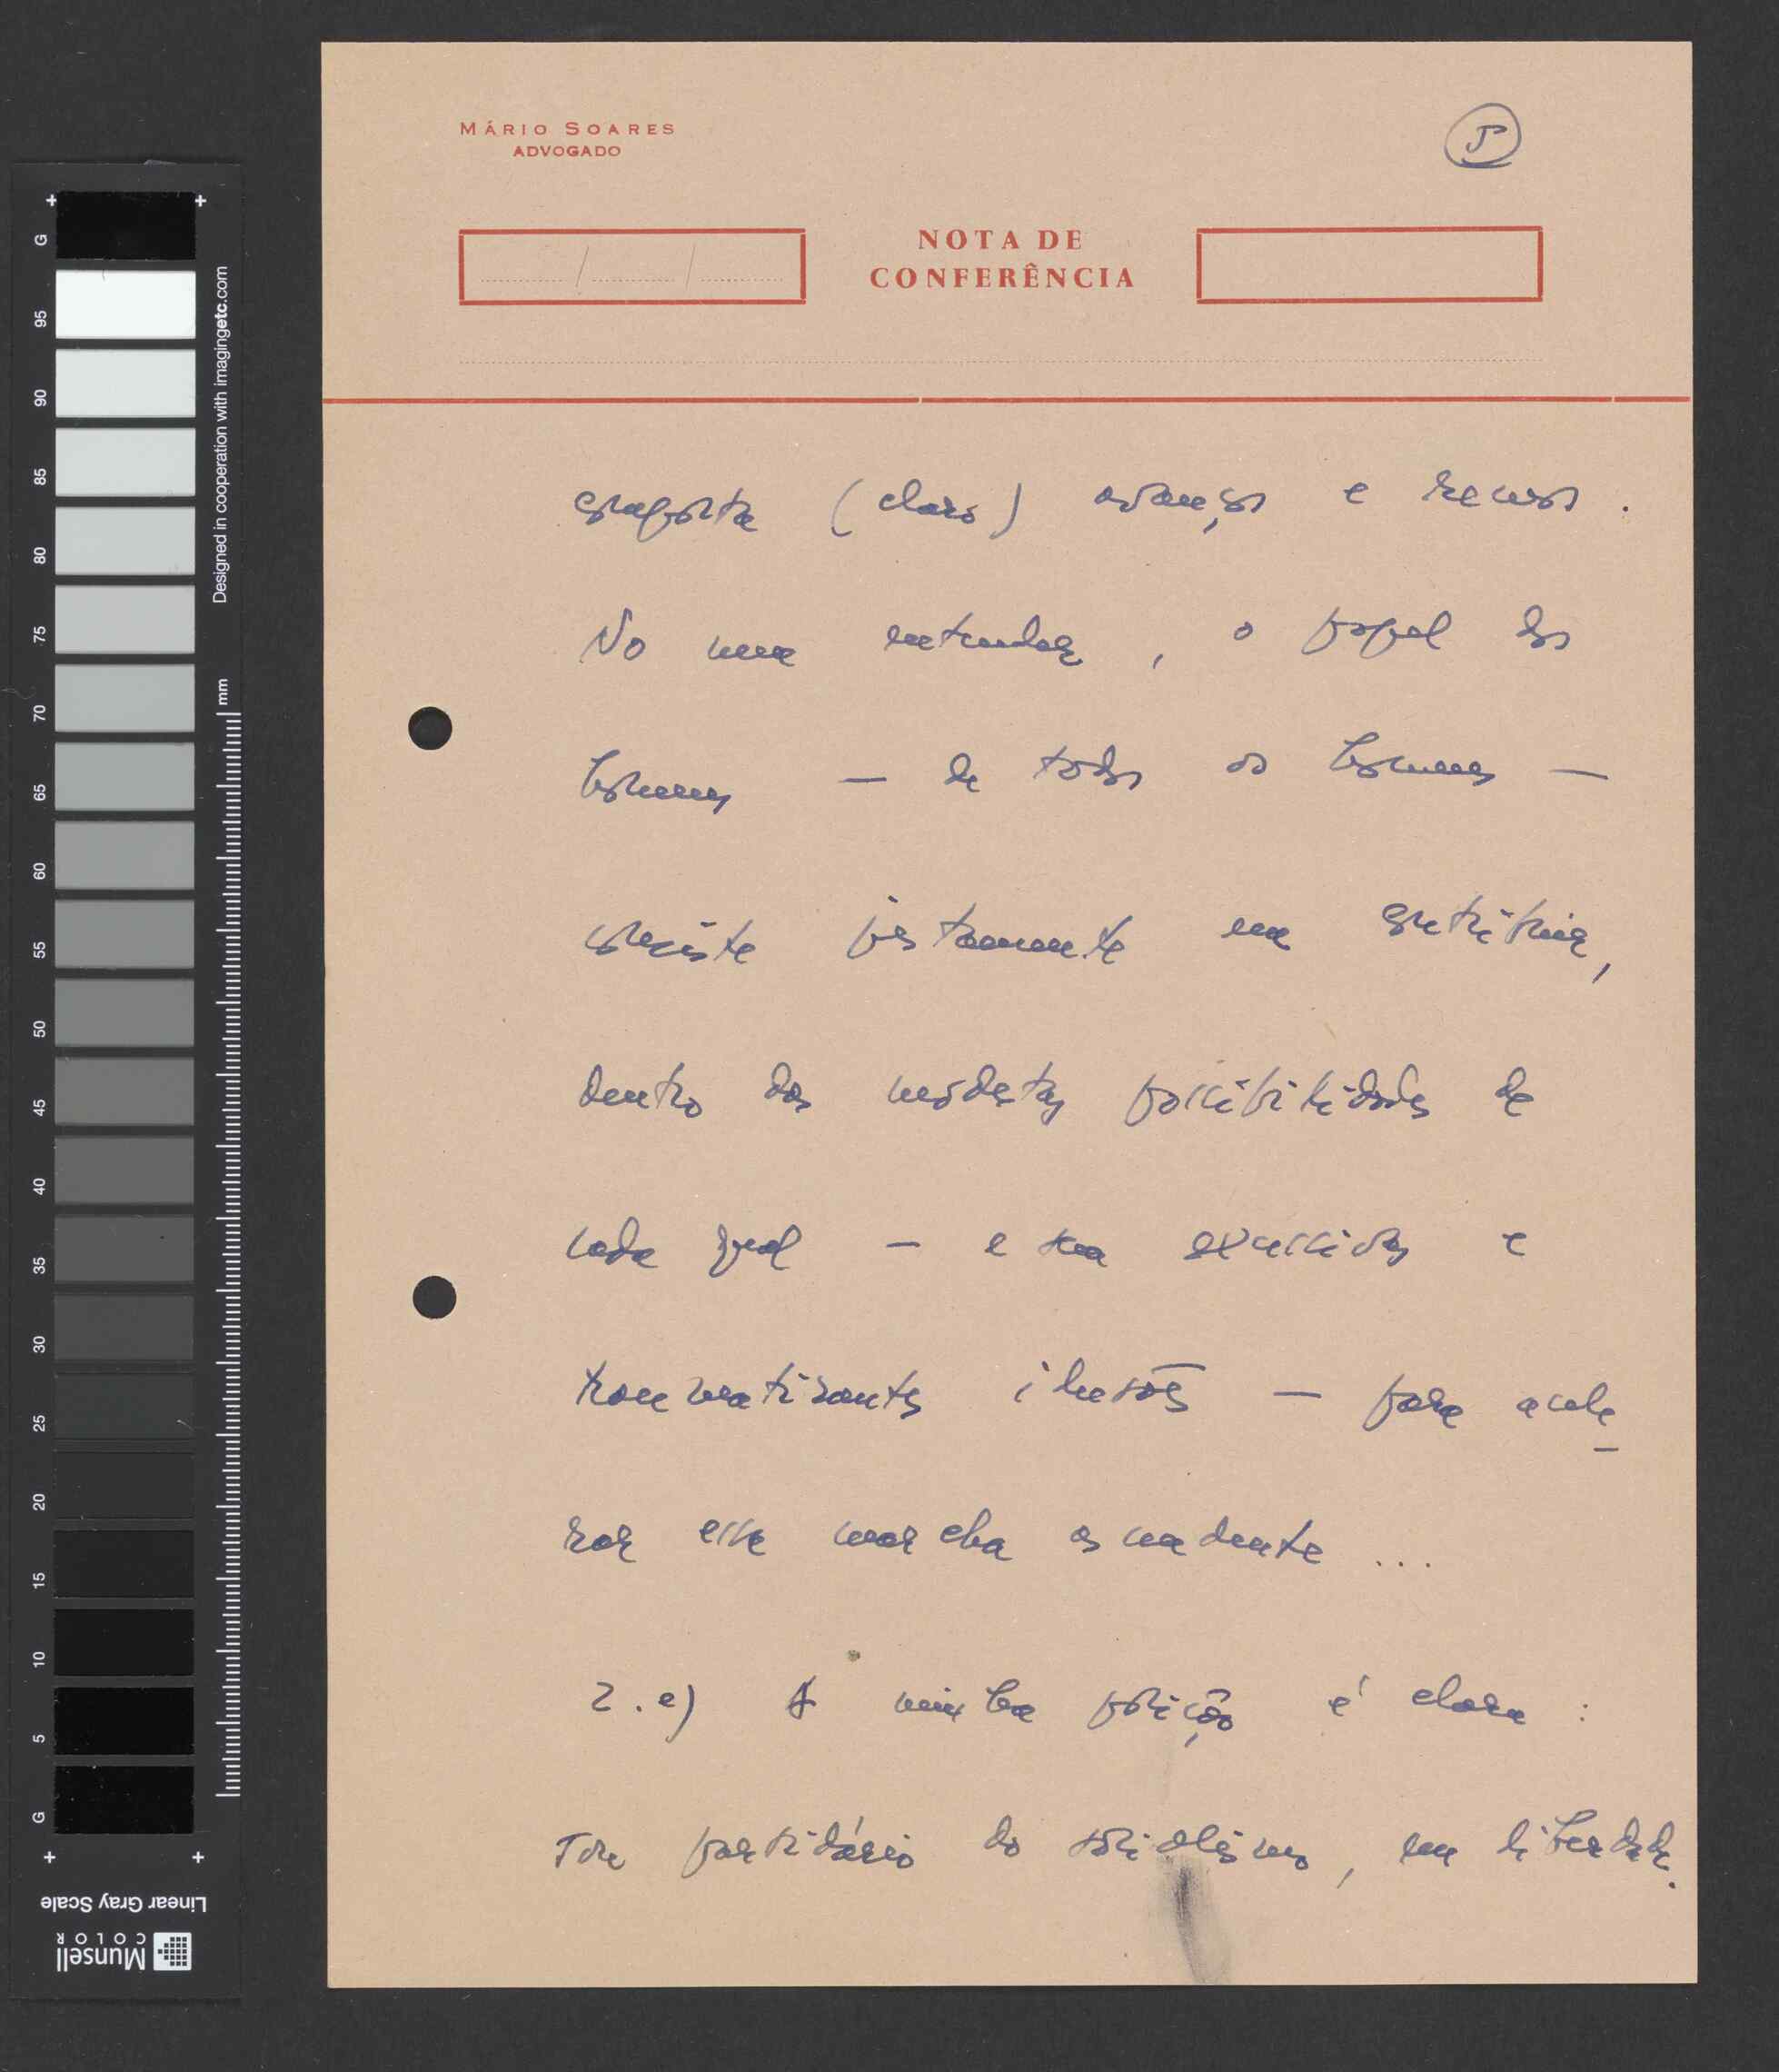 MÁRIO SOARES
ADVOGADO
5
NOTA DE
CONFERÊNCIA
comporta (claro) avanços e recuos.
No meu entender, o papel dos
homens — de todos os homens —
consiste justamente em contribuir,
dentro das modestas possibilidades de
cada qual — e sem excessivas e
traumatizantes ilusões — para acele-
rar essa marcha ascendente ...
2.e) A minha posição é clara:
Sou partidário do socialismo, em liberdade.
G
95
90
85
80
75
70
65
60
55
50
45
40
35
30
25
20
15
10
5
G
Designed in cooperation with imagingetc.com
mm
Linear Gray Scale
Munsell
COLOR